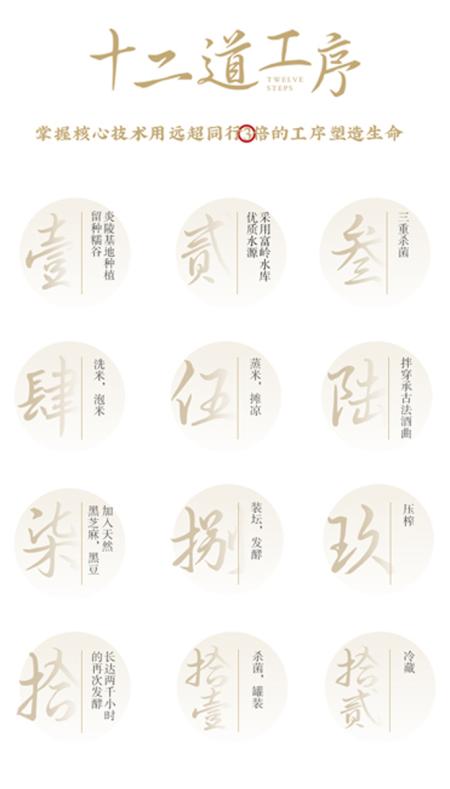 十二道工序
TWELVE
STEPS
掌握核心技术用远超同行3倍的工序塑造生命
壹
炎陵基地种植
留种糯谷
贰
采用富岭水库
优质水源
叁
三重杀菌
肆
洗米，泡米
伍
蒸米，摊凉
陆
拌穿承古法酒曲
柒
加入天然
黑芝麻，黑豆
捌
装坛，发酵
玖
压榨
拾
长达两千小时
的再次发酵
拾壹
杀菌，罐装
拾贰
冷藏